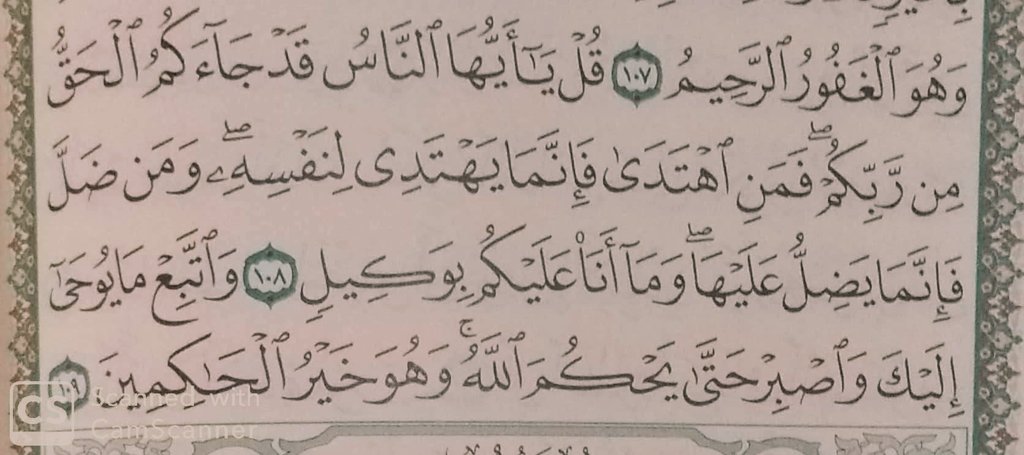 وَهُوَ ٱلْغَفُورُ ٱلرَّحِيمُ ١٠٧ قُلْ يَـٰٓأَيُّهَا ٱلنَّاسُ قَدْ جَآءَكُمُ ٱلْحَقُّ
مِن رَّبِّكُمْ ۖ فَمَنِ ٱهْتَدَىٰ فَإِنَّمَا يَهْتَدِى لِنَفْسِهِۦ ۖ وَمَن ضَلَّ
فَإِنَّمَا يَضِلُّ عَلَيْهَا ۖ وَمَآ أَنَا۠ عَلَيْكُم بِوَكِيلٍ ١٠٨ وَٱتَّبِعْ مَا يُوحَىٰٓ
إِلَيْكَ وَٱصْبِرْ حَتَّىٰ يَحْكُمَ ٱللَّهُ ۚ وَهُوَ خَيْرُ ٱلْحَـٰكِمِينَ
CS Scanned with
CamScanner